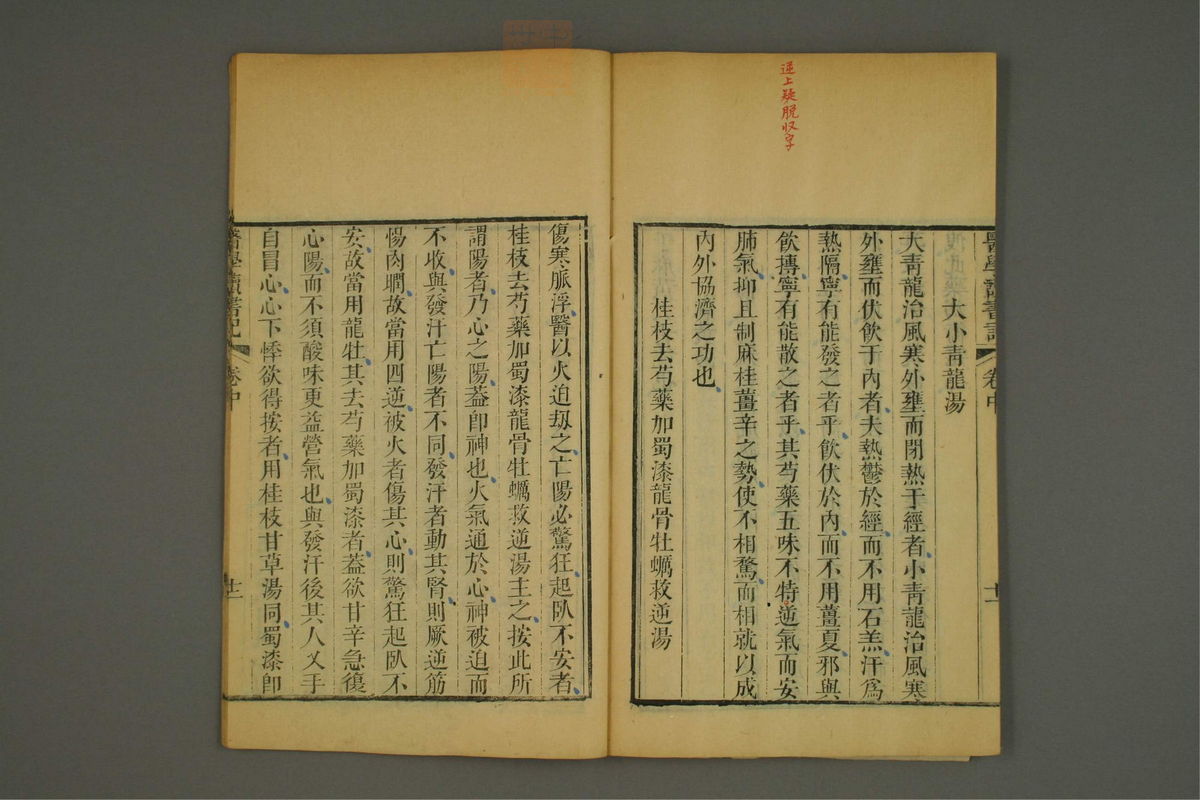 逆上疑脫収字
醫學讀書記 卷中
大小青龍湯
大青龍治風寒外壅而閉熱于經者小青龍治風寒
外壅而伏飲于內者夫熱鬱於經而不用石羔汗爲
熱隔寧有能發之者乎飲伏於內而不用薑夏邪與
飲摶寧有能散之者乎其芍藥五味不特逆氣而安
肺氣抑且制麻桂薑辛之勢使不相騖而相就以成
內外協濟之功也
桂枝去芍藥加蜀漆龍骨牡蠣救逆湯
傷寒脈浮醫以火迫刼之亡陽必驚狂起臥不安者
桂枝去芍藥加蜀漆龍骨牡蠣救逆湯主之按此所
謂陽者乃心之陽葢卽神也火氣通於心神被迫而
不收與發汗亡陽者不同發汗者動其腎則厥逆筋
惕肉瞤故當用四逆被火者傷其心則驚狂起臥不
安故當用龍牡其去芍藥加蜀漆者葢欲甘辛急復
心陽而不須酸味更益營氣也與發汗後其人叉手
自冒心心下悸欲得按者用桂枝甘草湯同蜀漆卽
醫學讀書記 卷中